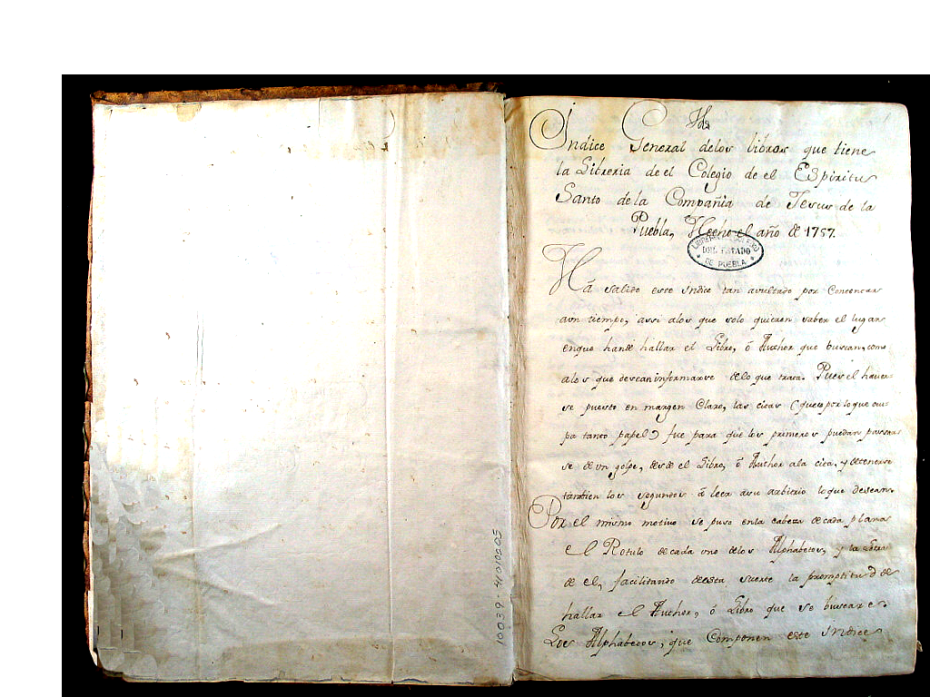 Jhs
Indice General delos libros que tiene
la Libreria de el Colegio de el Espiritu
Santo de la Compañia de Jesus de la
Puebla, Hecho el año de 1757.
DEL ESTADO
DE PUEBLA
Há salido este Indice tan avultado por Contentar
aun tiempo, assi alos que solo quieren saber el lugar
enque hande hallar el Libro, ó Author que buscan, como
alos que desean informarse delo que trata. Pues el haver
se puesto en margen Claro, las citas (que es por lo que ocu
pa tanto papel) fue para que los primeros puedan passar
se de un golpe, desde el Libro, ó Author ala cita, y detenerse
tambien los segundos á leer asu arbitrio loque desean.
Por el mismo motivo se puso enla cabeza de cada plana
el Rotulo de cada uno delos Alphabetos, y la
de el, facilitando deesta suerte la promptitud de
hallar el Author, ó Libro que se buscare.
Los Alphabetos, que Componen este Indice
10039-41010005